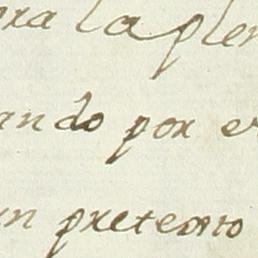 ra la plen
ando por e
un preterno